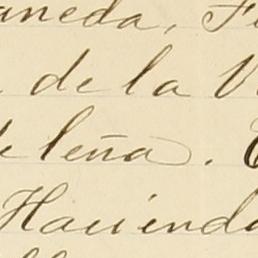 aneda, F
de la V
de leña.
Hacienda